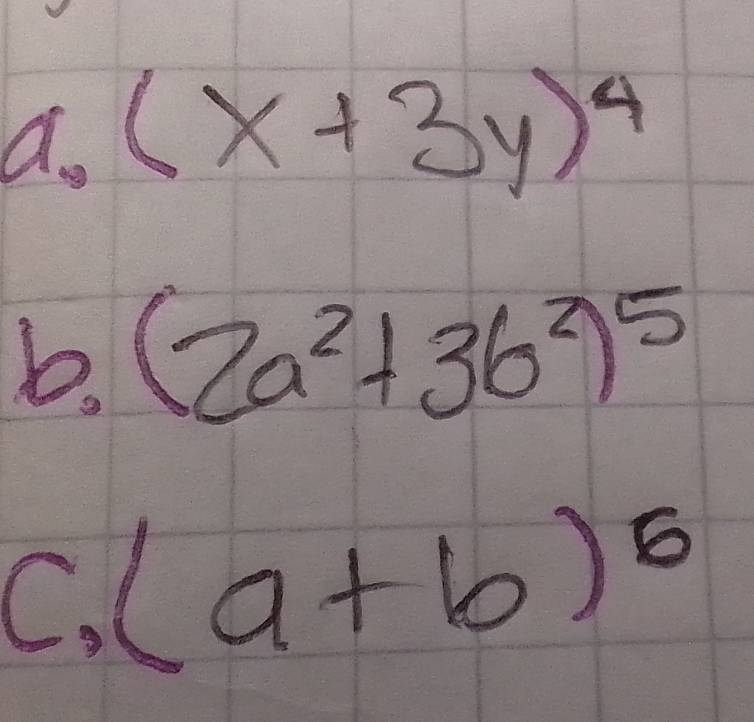 a. (x + 3y)⁴
b. (2a² + 3b²)⁵
c. (a + b)⁶